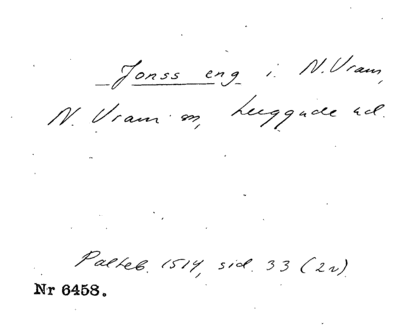 Jonss eng i N. Vram,
N. Vram sn, Luggude hd.
Palteb. 1514, sid. 33 (2v)
Nr 6458.